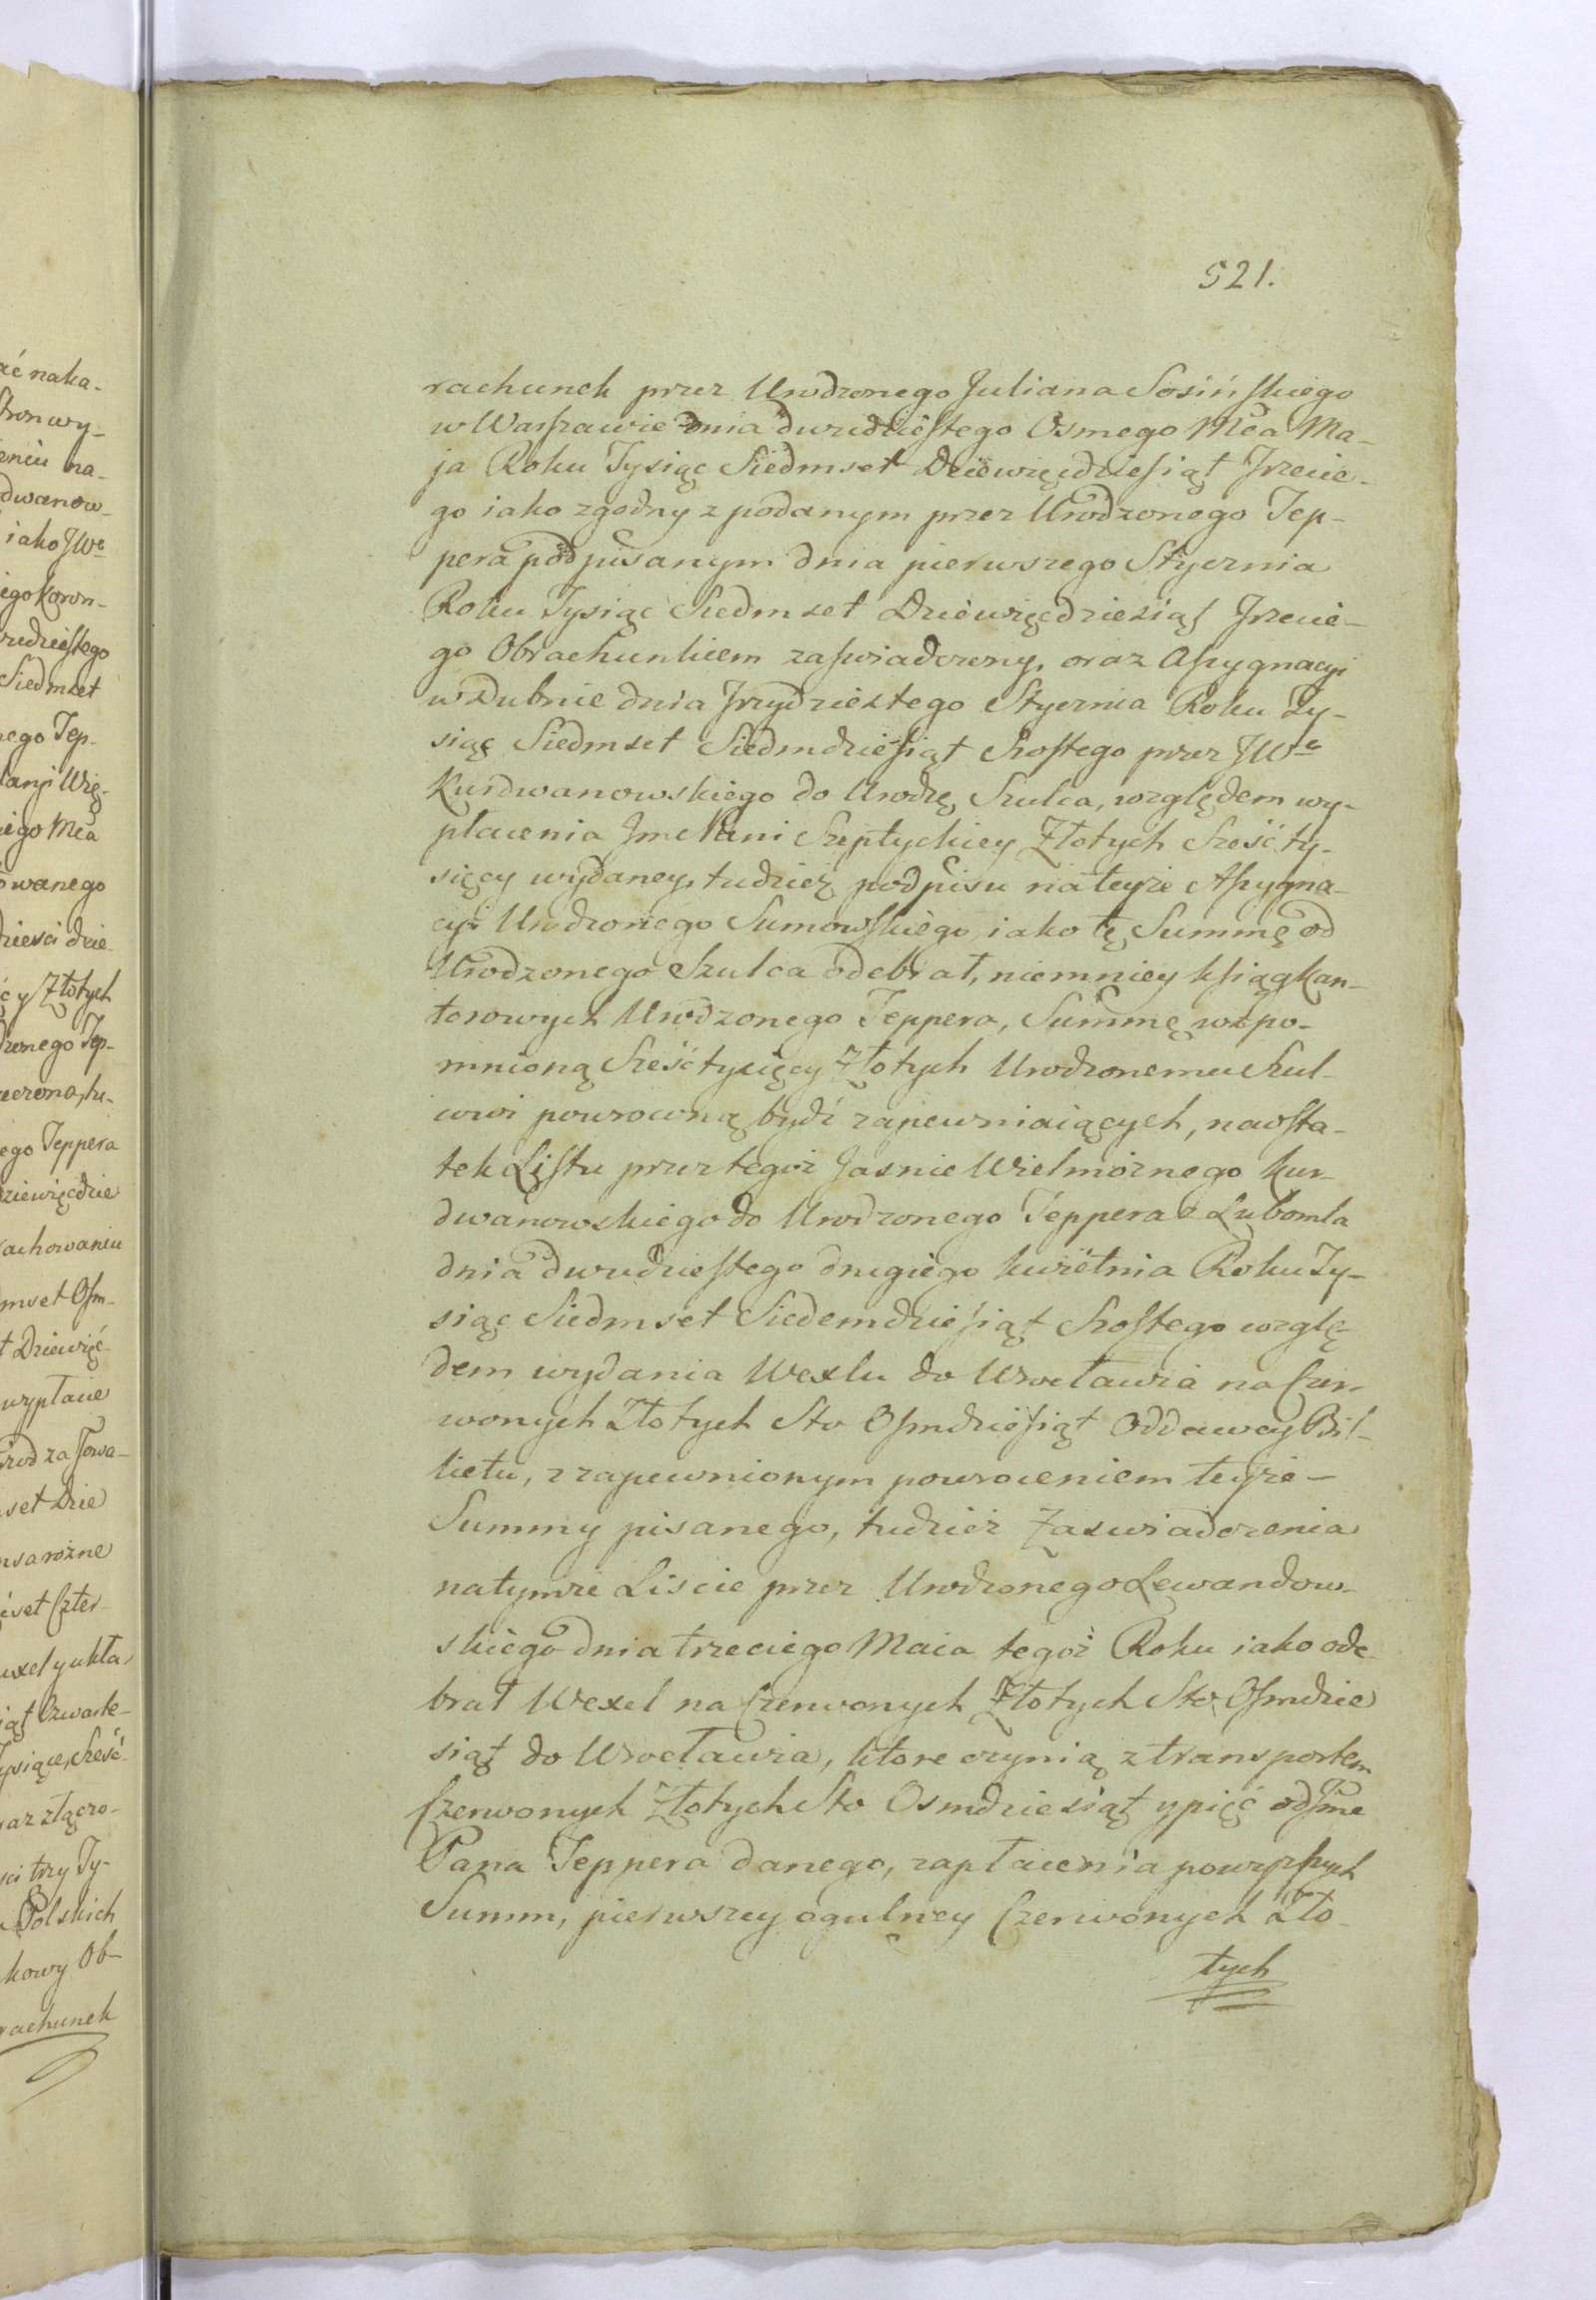 521.
rachunek przez Urodzonego Juliana Sosińskiego
w Warszawie dnia dwudziestego Osmego Mca Ma-
ja Roku Tysiąc Siedmset Dziewięćdziesiąt Trzecie-
go iako zgodny z podanym przez Urodzonego Tep-
pera podpisanym dnia pierwszego Stycznia
Roku Tysiąc Siedmset Dziewięćdziesiąt Trzecie-
go Obrachunkiem zaswiadczony, oraz Assygnacyi
w Dubnie dnia Trzydziestego Stycznia Roku Ty-
siąc Siedmset Siedmdziesiąt Szostego przez JWo
Kurdwanowskiego do Urodzo Szulca, względem wy-
płacenia Jmc Pani Szeptyckiey Złotych Sześć ty-
sięcy wydaney, tudzież podpisu na teyże Assygna-
cyi Urodzonego Sumowskiego, iako tę Summę od
Urodzonego Szulca odebrał, niemniey ksiąg kan-
torowych Urodzonego Teppera, Summę wspo-
mnioną Sześć tysięcy Złotych Urodzonemu Szul-
cowi powroconą bydź zapewniaiących, naosta-
tek Listu przez tegoż Jasnie Wielmożnego Kur-
dwanowskiego do Urodzonego Teppera z Lubomla
dnia dwudziestego drugiego kwietnia Roku Ty-
siąc Siedmset Siedemdziesiąt Szostego wzglę-
dem wydania Wexlu do Wrocławia na Czer-
wonych Złotych Sto Osmdziesiąt Oddawcy Bil-
lietu, z zapewnionym powroceniem teyże
Summy pisanego, tudzież Zaswiadczenia
na tymże Liscie przez Urodzonego Lewandow-
skiego dnia trzeciego Maia tegoż Roku iako ode-
brał Wexel na Czerwonych Złotych Sto Osmdzie
siąt do Wrocławia, ktore czynią z transportem
Czerwonych Złotych Sto Osmdziesiąt y pięć od Jme
Pana Teppera danego, zapłacenia powyższych
Summ, pierwszey ogulney Czerwonych Zło-
tych
ać naka-
Stron wy-
eniu na-
dwanow-
iako JWo
iego Koron-
wudziestego
Siedmset
nego Tep-
iego Mca
owanego
dziesci dzie-
cy Złotych
zonego Tep-
ego Teppera
ziewięćdzie
achowaniu
mset Osm-
t Dziewięć-
wypłacie
set Dzie
set Czter-
iąt Czwarte-
Tysiące, Sześć-
ci trzy Ty-
Polskich
kowy Ob-
rachunek